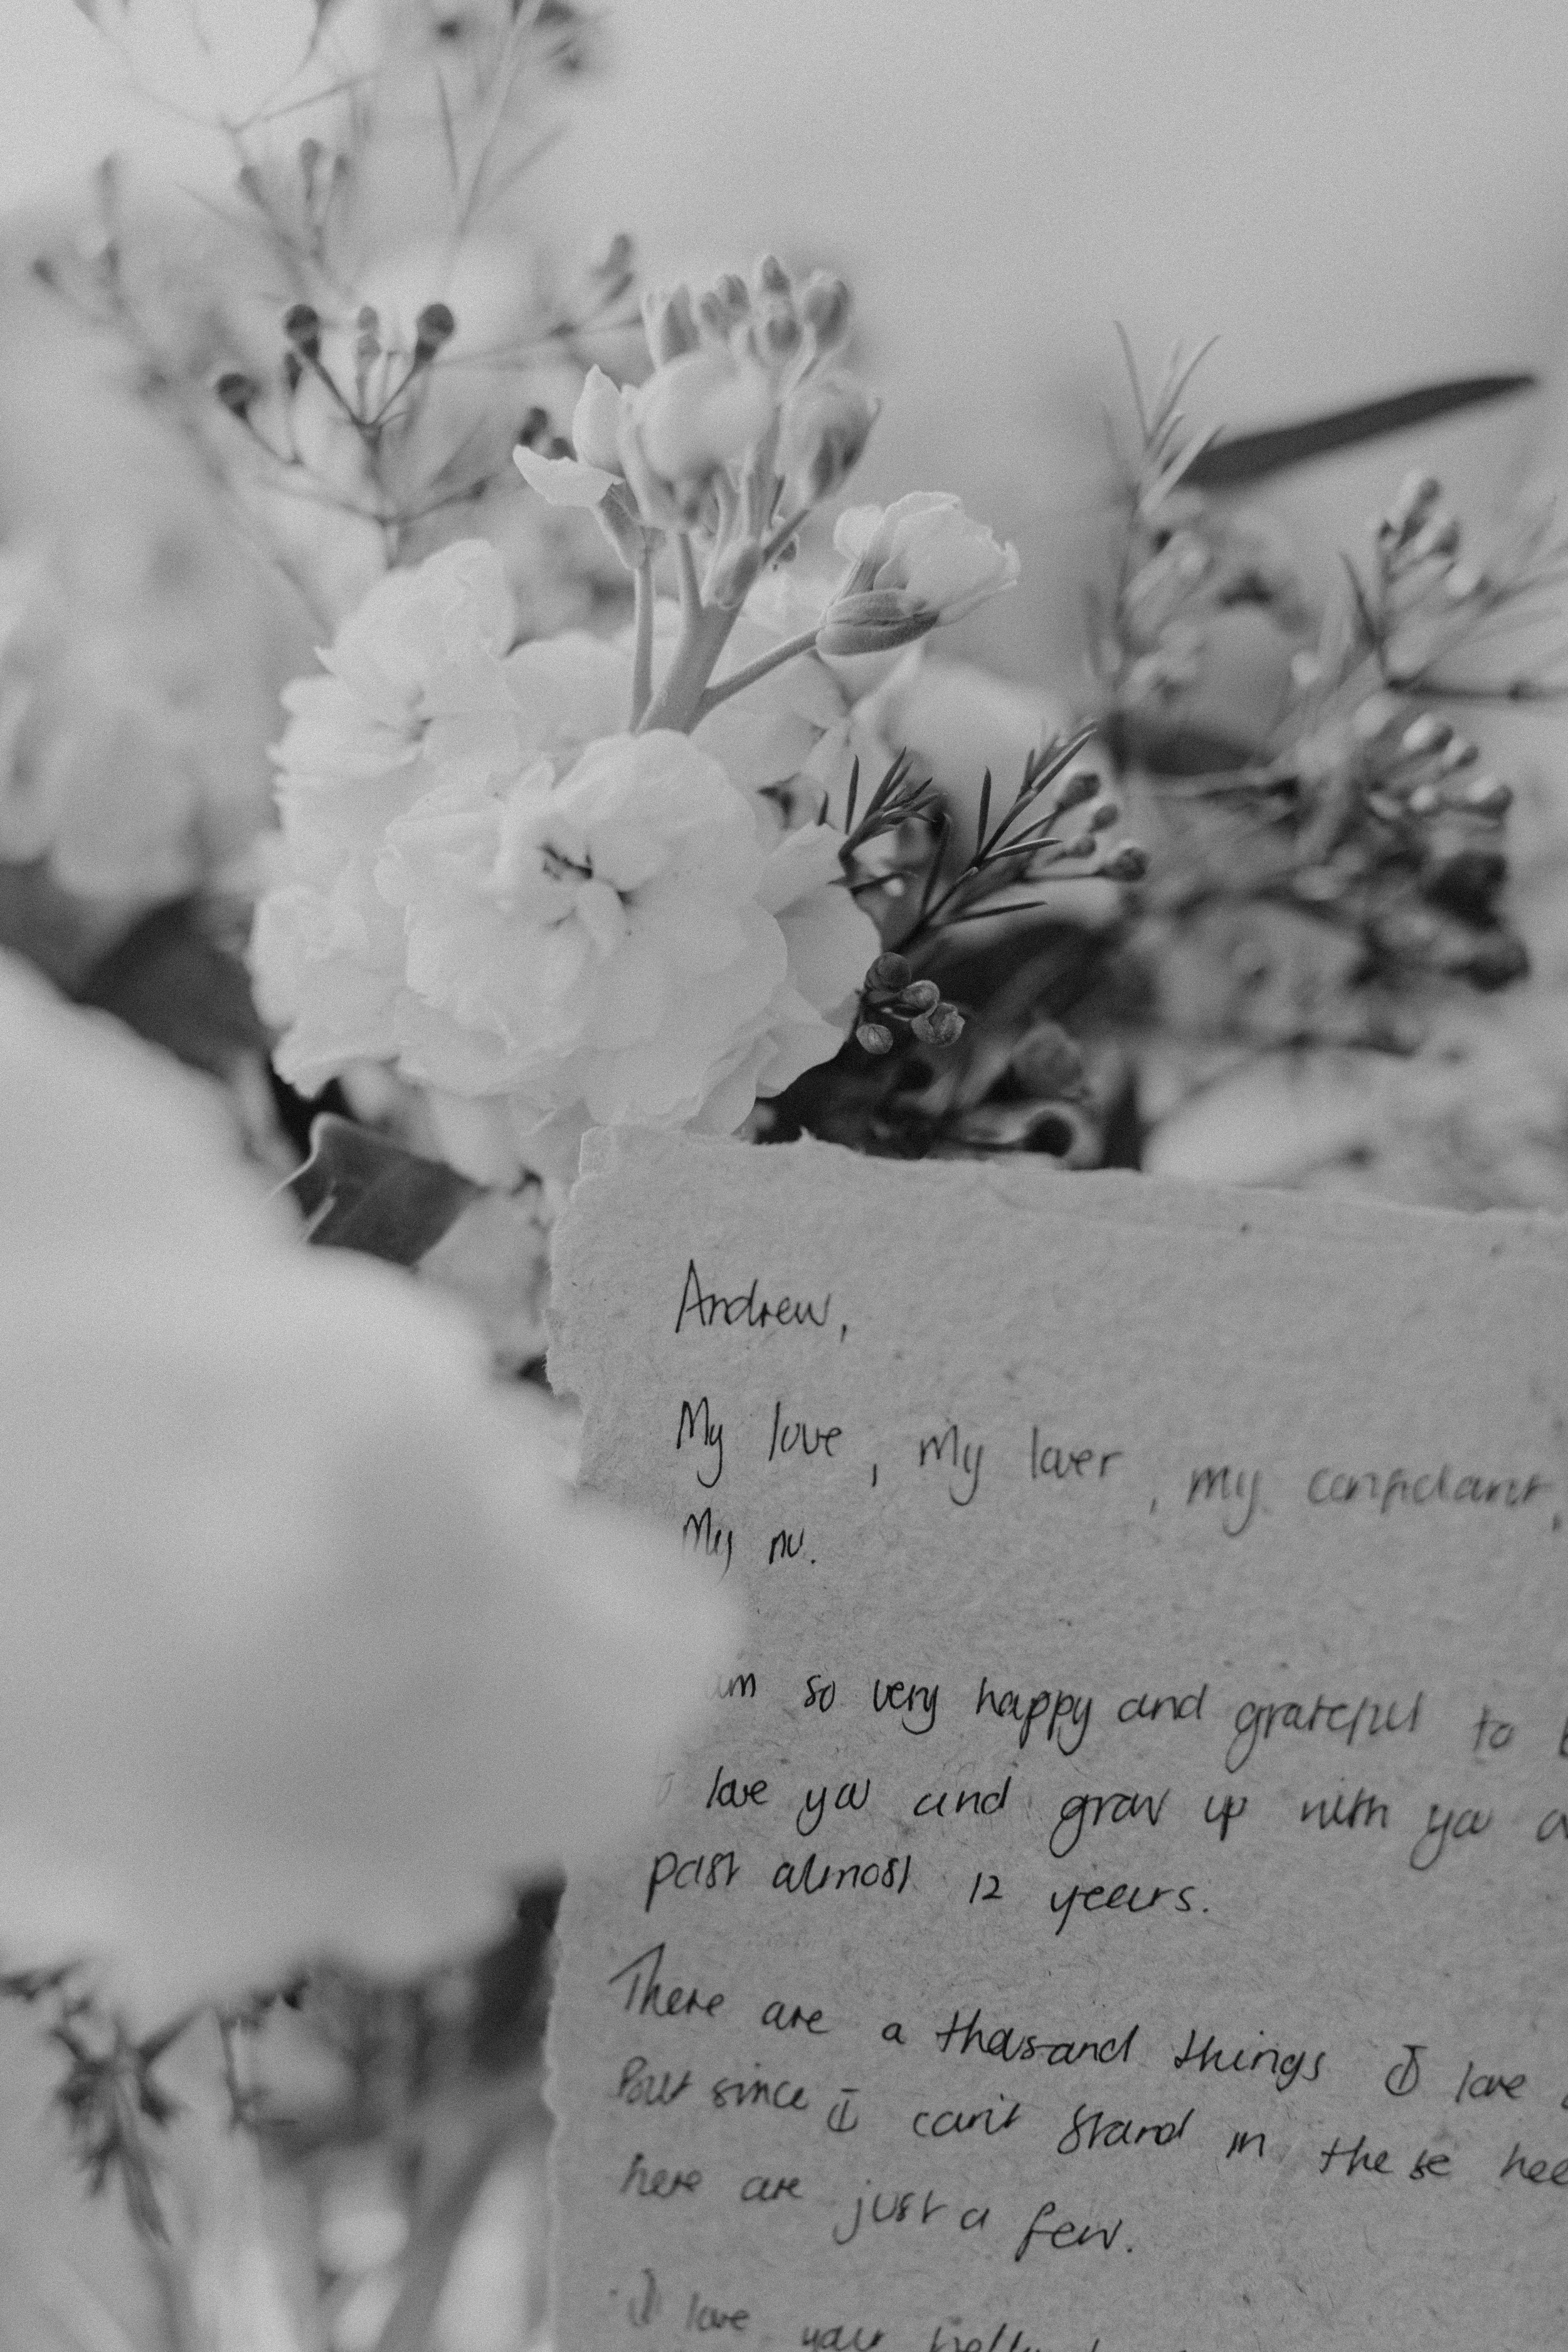 Andrew,
My love, my lover, my confidant,
My nu.
am so very happy and grateful to
love you and grow up with you
past almost 12 years.
There are a thousand things I love
But since I can't stand in these
here are just a few.
I love your